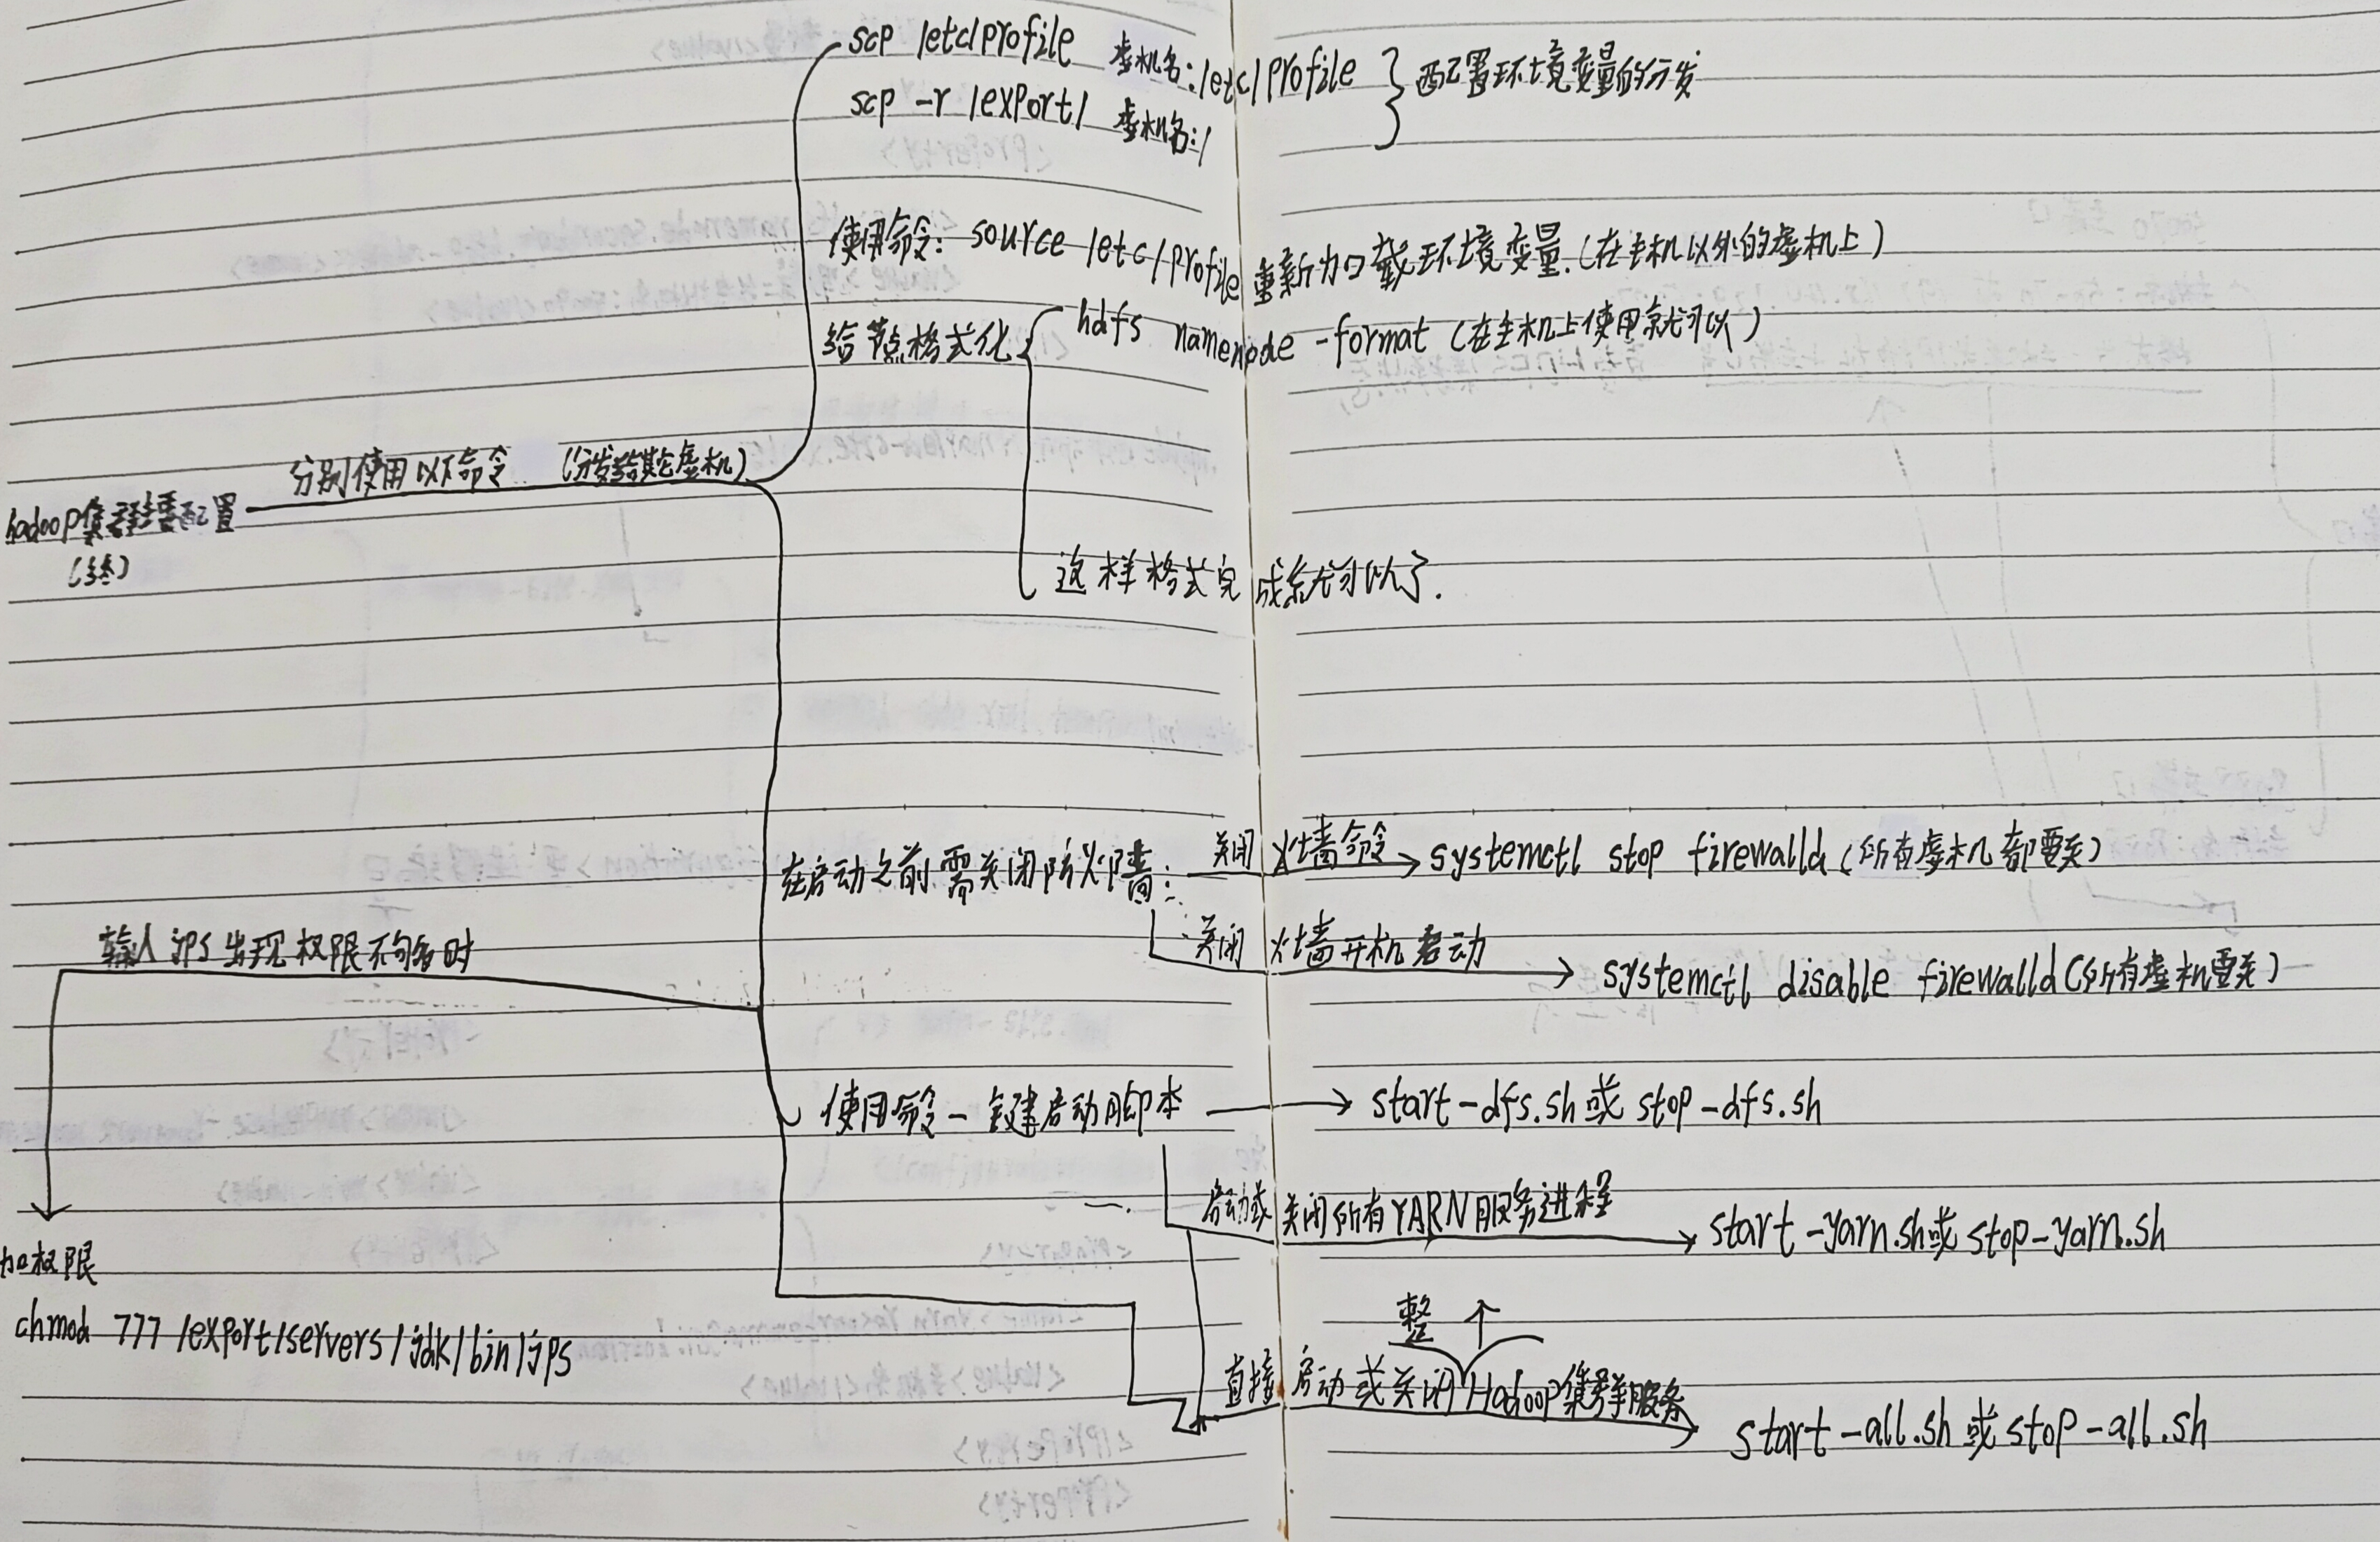 scp /etc/profile 虚机名:/etc/profile
scp -r /export/ 虚机名:/
配置环境变量的分发
使用命令: source /etc/profile 重新加载环境变量.(在主机以外的虚机上)
给节点格式化
hdfs namenode -format (在主机上使用就可以)
这样格式完成就可以了.
分别使用以下命令 (分发给其它虚机)
hadoop集群配置
(终)
在启动之前需关闭防火墙:
关闭火墙命令
systemctl stop firewalld (所有虚机都要关)
关闭火墙开机启动
systemctl disable firewalld (所有虚机要关)
输入 jps 出现权限不够多时
加权限
chmod 777 /export/servers/jdk/bin/jps
使用命令一键启动脚本
start-dfs.sh 或 stop-dfs.sh
启动或关闭所有YARN服务进程
start-yarn.sh或 stop-yarn.sh
整个
直接启动或关闭Hadoop集群服务
start-all.sh 或 stop-all.sh